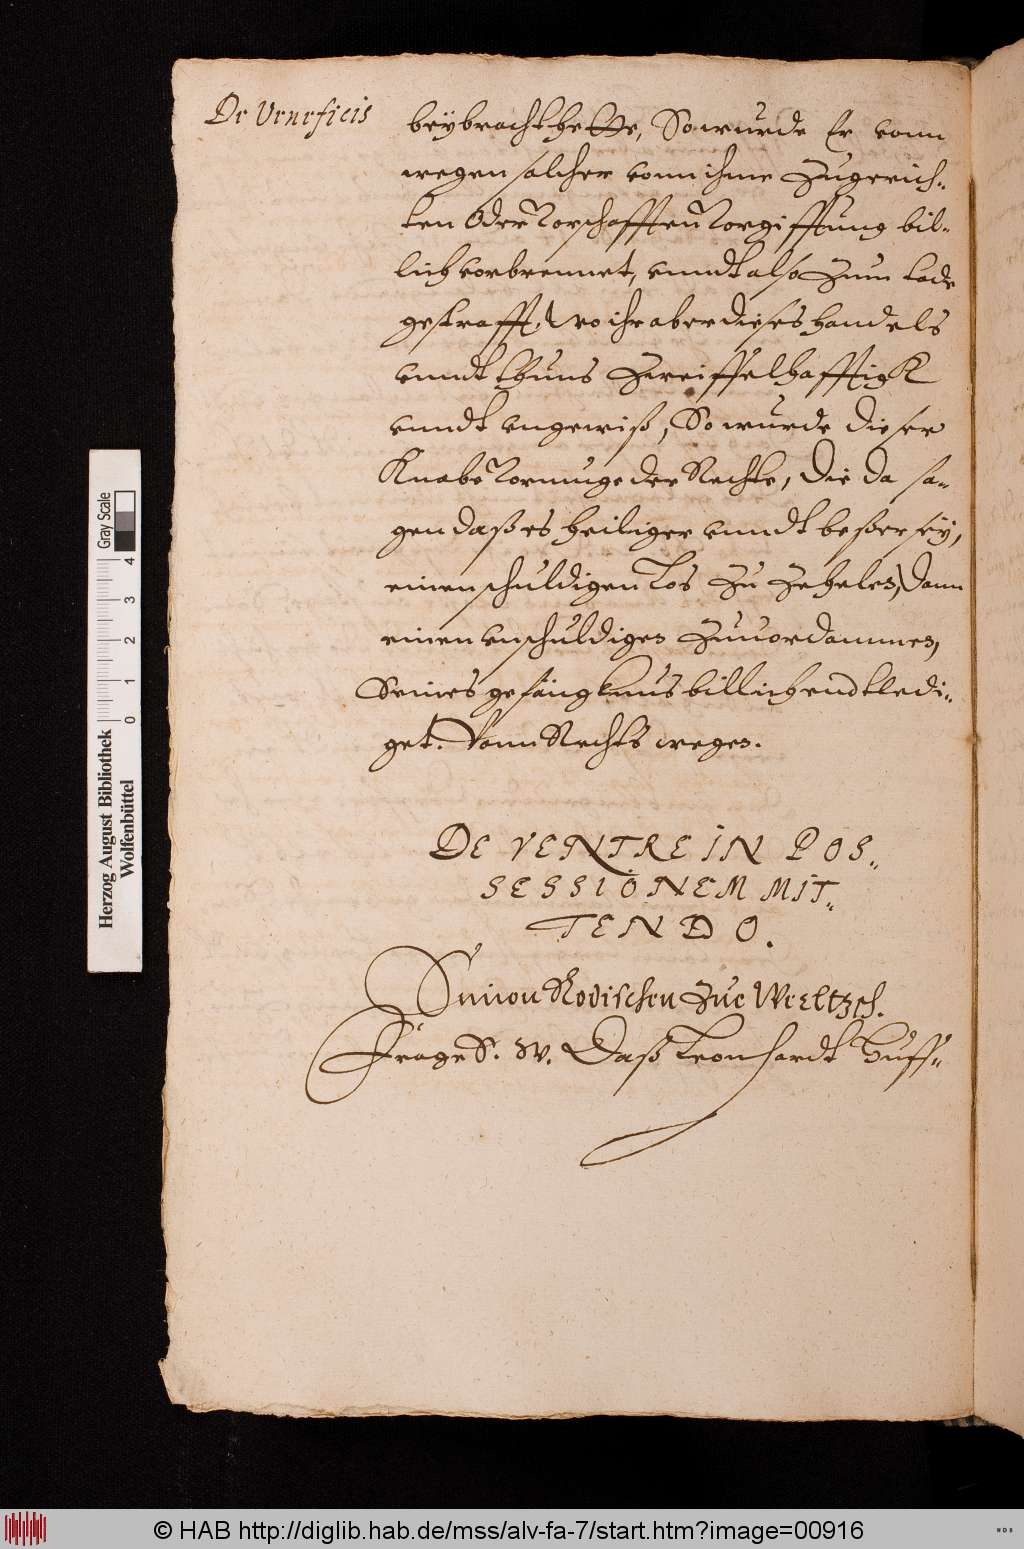 De Veneficis
beybracht hette, So wurde Er vonn
wegen solcher vonn ihme zugerich-
ten Oder vorschafften vorgifftung bil-
lich vorbrennet, vnndt also zum tode
gestrafft, wo ihr aber dieses handels
vnndt thuns zweiffelhafftigk
vnndt vngewiß, So wurde dieser
Knabe vormuge der Rechte, die da sa-
gen daß es heiliger vnndt beßer sey,
einen schuldigen los zu zehelen, dann
einen vnschuldigen zuuordammen,
Seines gefängknus billich endtledi-
get. Vonn Rechts wegen.
DE VENTRE IN POS-
SESSIONEM MIT-
TENDO.
Simon Rodischen zue
Frage S. W. Daß Leonhardt
Herzog August Bibliothek
Wolfenbüttel
0 1 2 3 4
Gray Scale
© HAB http://diglib.hab.de/mss/alv-fa-7/start.htm?image=00916